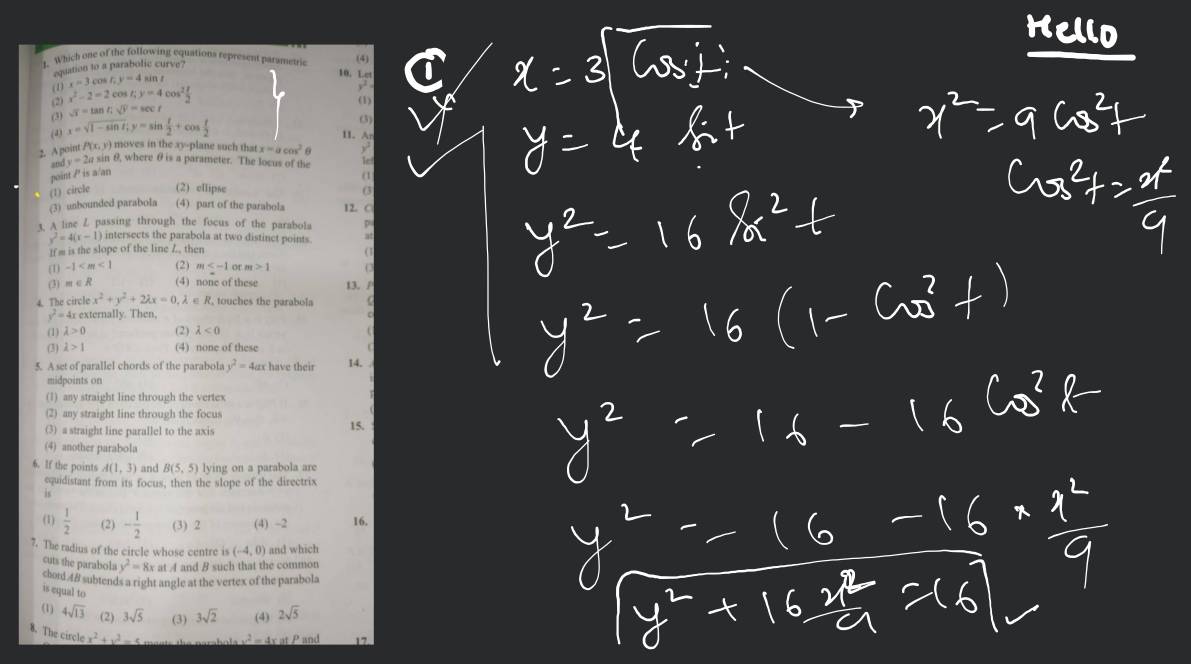 1. Which one of the following equations represent parametric
equation to a parabolic curve?
(1) x = 3 cos t; y = 4 sin t
(2) x² − 2 = 2 cos t; y = 4 cos² t/2
(3) √x = tan t; √y = sec t
(4) x = √1 − sin t; y = sin t/2 + cos t/2
2. A point P(x, y) moves in the xy-plane such that x = a cos² θ
and y = 2a sin θ, where θ is a parameter. The locus of the
point P is a/an
(1) circle (2) ellipse
(3) unbounded parabola (4) part of the parabola
3. A line L passing through the focus of the parabola
y² = 4(x − 1) intersects the parabola at two distinct points.
If m is the slope of the line L, then
(1) −1 < m < 1 (2) m < −1 or m > 1
(3) m ∈ R (4) none of these
4. The circle x² + y² + 2λx = 0, λ ∈ R, touches the parabola
y² = 4x externally. Then,
(1) λ > 0 (2) λ < 0
(3) λ > 1 (4) none of these
5. A set of parallel chords of the parabola y² = 4ax have their
midpoints on
(1) any straight line through the vertex
(2) any straight line through the focus
(3) a straight line parallel to the axis
(4) another parabola
6. If the points A(1, 3) and B(5, 5) lying on a parabola are
equidistant from its focus, then the slope of the directrix
is
(1) 1/2 (2) −1/2 (3) 2 (4) −2
7. The radius of the circle whose centre is (−4, 0) and which
cuts the parabola y² = 8x at A and B such that the common
chord AB subtends a right angle at the vertex of the parabola
is equal to
(1) 4√13 (2) 3√5 (3) 3√2 (4) 2√5
8. The circle x² + y² = 5 meets the parabola y² = 4x at P and
(4)
10. Let
y²
(1)
(3)
11. An
y²
(1)
(3)
12.
(1)
(3)
13.
14.
15.
16.
17.
Hello
①
x = 3 Cos t;
y = 4 Sin t
y² = 16 Sin² t
y² = 16 (1 - Cos² t)
y² = 16 - 16 Cos² t
y² = 16 - 16 × x²/9
y² + 16 x²/9 = 16
x² = 9 Cos² t
Cos² t = x²/9